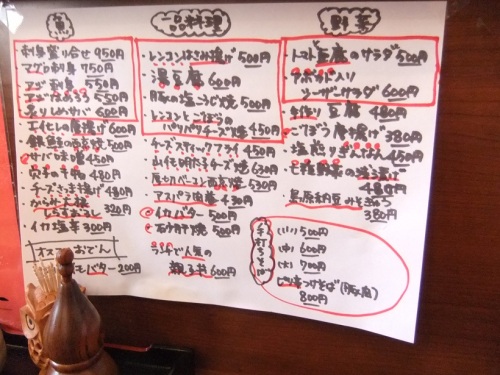 魚
刺身盛り合せ 950円
マグロ刺身 750円
アジ刺身 550円
アジなめろう 550円
炙りしめサバ 600円
エイヒレの唐揚げ 600円
銀鮭の南蛮焼 500円
サバ味噌 450円
穴子の干物 480円
チーズささみ揚げ 480円
からみ大根
しらすおろし 320円
イカ塩辛 300円
オススメおでん
バター 200円
一品料理
・レンコンはさみ揚げ 500円
・湯豆腐 600円
・豚の塩こうじ焼 500円
・レンコンとごぼうの
パリパリチーズ焼 450円
チーズスティックフライ 450円
山イモ明太チーズ焼 560円
厚切りベーコン 530円
アスパラ 430円
イカバター 500円
砂肝焼 500円
ランチで人気の
親子丼 600円
野菜
・トマトと豆腐のサラダ 500円
入り
シーザーサラダ 600円
・手作り豆腐 480円
・ごぼう唐揚げ 380円
・塩煎りぎんなん 450円
・七種野菜の
480円
納豆みそきゅう 380円
手打ちそば
(小) 500円
(中) 600円
(大) 700円
ピリ辛つけそば(豚肉)
800円